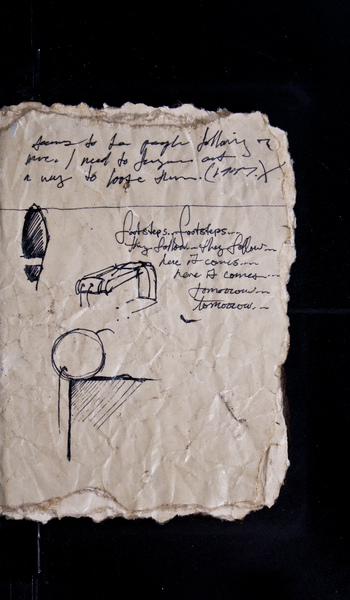 seems to be people following
me. I need to figure out
a way to loose them.
footsteps...footsteps...
they follow...they follow...
here it comes...
here it comes...
tomorrow...
tomorrow...